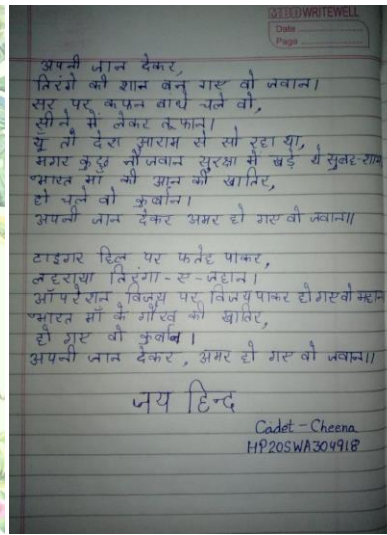 WRITEWELL
Date
Page
अपनी जान देकर,
तिरंगे की शान बन गए वो जवान।
सर पर कफन बांधे चले वो,
सीने में लेकर तूफान।
यूँ तो देश आराम से सो रहा था,
मगर कुछ नौजवान सुरक्षा में खड़े थे सुबह-शाम
भारत माँ की आन की खातिर,
हो चले वो कुर्बान।
अपनी जान देकर अमर हो गए वो जवान॥
टाइगर हिल पर फतेह पाकर,
लहराया तिरंगा-ए-जहान।
ऑपरेशन विजय पर विजय पाकर हो गए वो महान
भारत माँ के गौरव की खातिर,
हो गए वो कुर्बान।
अपनी जान देकर, अमर हो गए वो जवान॥
जय हिन्द
Cadet - Cheena
HP20SWA304918